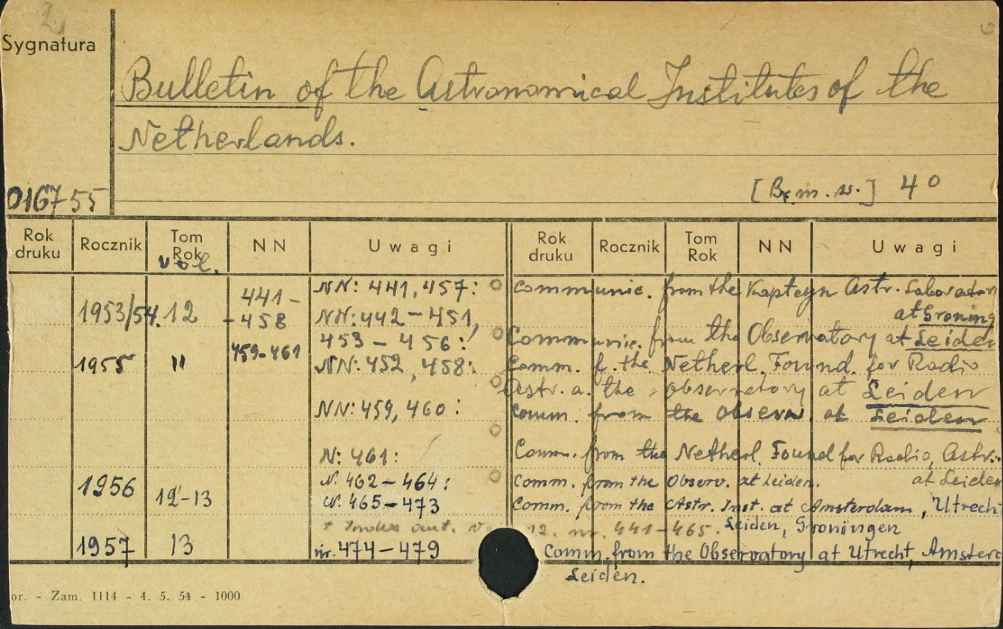 2,
Sygnatura
Bulletin of the Astronomical Institutes of the
Netherlands.
016755
[B. m. w.] 4°
Rok druku Rocznik Tom Rok vol. NN Uwagi Rok druku Rocznik Tom Rok NN Uwagi
1953/54. 12 441-458 NN: 441, 457: Communic. from the Kapteyn Astr. Laborator
at Groning
NN: 442-451,
453-456: Communic. from the Observatory at Leiden
1955 " 459-461 NN: 452, 458: Comm. f. the Netherl. Found. for Radio
Astr. a. the observatory at Leiden
NN: 459, 460: Comm. from the Observ. at Leiden
N: 461: Comm. from the Netherl. Found for Radio, Astr.
at Leiden
1956 12-13 N. 462-464: Comm. from the Observ. at Leiden.
N. 465-473 Comm. from the Astr. Inst. at Amsterdam, Utrech
Leiden, Groningen
+ Index aut. v. 12. nr. 441-465.
1957 13 nr. 474-479 Comm. from the Observatory at Utrecht, Amster
Leiden.
or. - Zam. 1114 - 4. 5. 54 - 1000